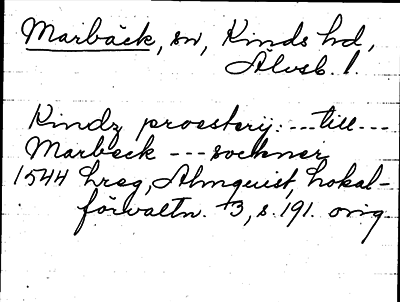 Marbäck, sn, Kinds hd,
Älvsb. l.
Kindz proesterij: --- till ---
Marbeck --- sockner
1544 hreg, Almquist, Lokal-
förvaltn. +3, s. 191. orig